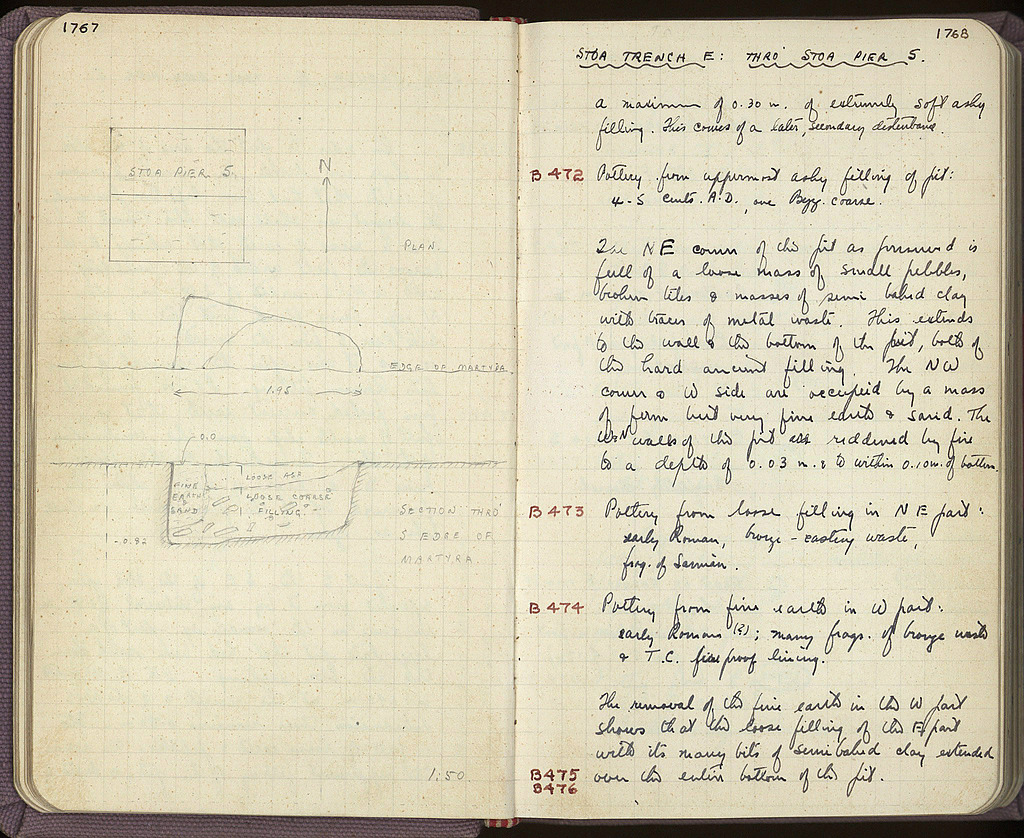 1767
STOA PIER 5.
N
PLAN.
EDGE OF MARTYRA.
1.95
0.0
LOOSE ASH
FINE EARTH & SAND
LOOSE COARSE FILLING.
-0.92
SECTION THRO'
S EDGE OF
MARTYRA.
1:50.
1768
STOA TRENCH E: THRO' STOA PIER 5.
a maximum of 0.30 m. of extremely soft ashy
filling. This comes of a later, secondary disturbance.
B 472 Pottery from uppermost ashy filling of pit:
4-5 cents. A.D., one Byz. coarse.
The NE corner of the pit as preserved is
full of a loose mass of small pebbles,
broken tiles & masses of semi baked clay
with traces of metal waste. This extends
to the wall & the bottom of the pit, both of
the hard ancient filling. The NW
corner & W side are occupied by a mass
of firm but very fine earth & sand. The
walls of the pit are reddened by fire
to a depth of 0.03 m. & to within 0.10 m. of bottom.
B 473 Pottery from loose filling in NE part:
early Roman, bronze-casting waste,
frag. of Samian.
B 474 Pottery from fine earth in W part:
early Roman (?); many frags. of bronze waste
& T.C. fireproof lining.
The removal of the fine earth in the W part
shows that the loose filling of the E part
with its many bits of semi baked clay extended
B475 over the entire bottom of the pit.
B476